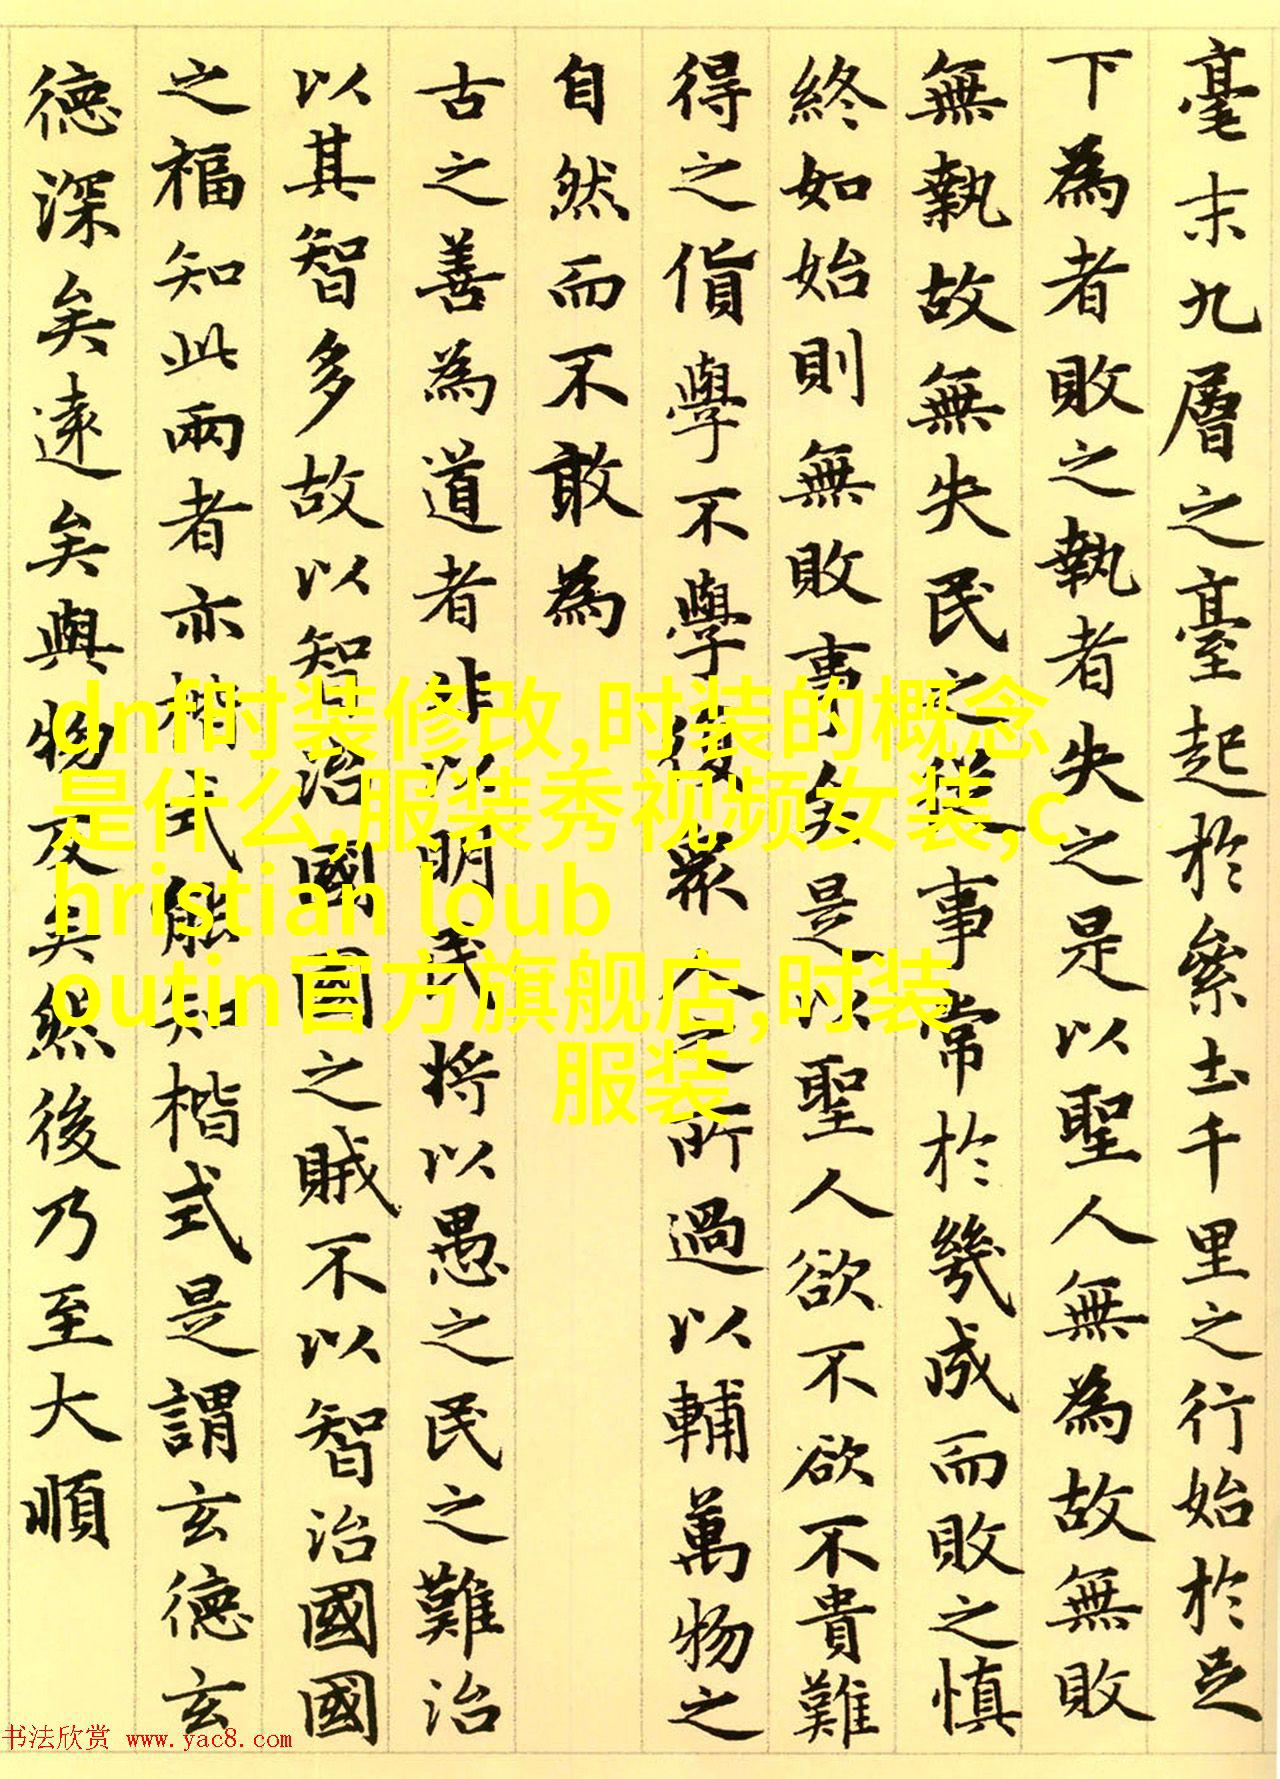 毫末九層之臺起於絫土千里之行始於足
下為者敗之執者失之是以聖人無為故無敗
無執故無失民之從事常於幾成而敗之慎
終如始則無敗事矣是以聖人欲不欲不貴難
得之貨學不學復眾人之所過以輔萬物之
自然而不敢為
古之善為道者非以明民將以愚之民之難治
以其智多故以智治國國之賊不以智治國國
之福知此兩者亦楷式能知楷式是謂玄德玄
德深矣遠矣與物反矣然後乃至大順
dnf时装修改,时装的概念
是什么,服装秀视频女装,c
hristian loub
outin官方旗舰店,时装
服装
书法欣赏 www.yac8.com